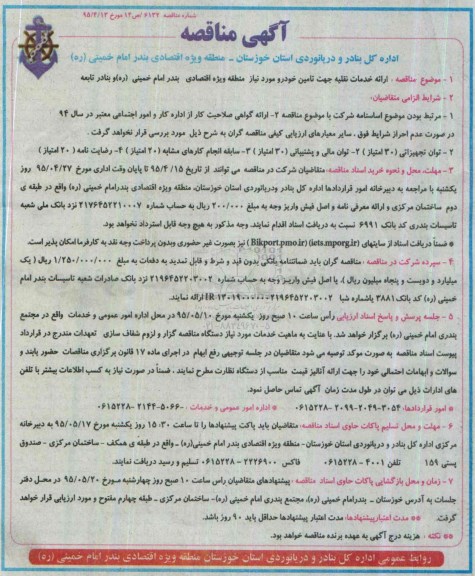 شماره مناقصه ۶۱۳۲ /ص/۱۲ مورخ ۹۵/۴/۱۳
آگهی مناقصه
اداره کل بنادر و دریانوردی استان خوزستان _ منطقه ویژه اقتصادی بندر امام خمینی (ره)
۱ - موضوع مناقصه : ارائه خدمات نقلیه جهت تامین خودرو مورد نیاز منطقه ویژه اقتصادی بندر امام خمینی (ره)و بنادر تابعه
۲ - شرایط الزامی متقاضیان:
۱ - مرتبط بودن موضوع اساسنامه شرکت با موضوع مناقصه ۲- ارائه گواهی صلاحیت کار از اداره کار و امور اجتماعی معتبر در سال ۹۴
در صورت عدم احراز شرایط فوق ، سایر معیارهای ارزیابی کیفی مناقصه گران به شرح ذیل مورد بررسی قرار نخواهد گرفت .
۲ - توان تجهیزاتی (۳۰ امتیاز ) ۲- توان مالی و پشتیبانی (۳۰ امتیاز ) ۳- سابقه انجام کارهای مشابه (۲۰ امتیاز ) ۴- رضایت نامه ( ۲۰ امتیاز )
۳ - مهلت، محل و نحوه خرید اسناد مناقصه: متقاضیان شرکت در مناقصه می توانند از تاریخ ۹۵/۴/۱۵ تا پایان وقت اداری مورخ ۹۵/۰۴/۲۷ روز
یکشنبه با مراجعه به دبیرخانه امور قراردادها اداره کل بنادر ودریانوردی استان خوزستان، منطقه ویژه اقتصادی بندرامام خمینی (ره) واقع در طبقه ی
دوم ساختمان مرکزی و ارائه معرفی نامه و اصل فیش واریز وجه به مبلغ ۲۰۰/۰۰۰ ریال به حساب شماره ۲۱۷۶۴۵۲۲۱۰۰۰۷ نزد بانک ملی شعبه
تاسیسات بندری کد بانک ۶۹۹۱ نسبت به دریافت اسناد اقدام نمایند. وجه مذکور به هیچ وجه قابل استرداد نخواهد بود.
* ضمناً دریافت اسناد از سایتهای (iets.mporg.ir) ( Bikport.pmo.ir) نیز بصورت غیر حضوری وبدون پرداخت وجه نقد به کارفرما امکان پذیر است.
۴ - سپرده شرکت در مناقصه : مناقصه گران باید ضمانتنامه بانکی بدون قید و شرط و قابل تمدید به دفعات به مبلغ ۱/۲۵۰/۰۰۰/۰۰۰ ریال ( یک
میلیارد و دویست و پنجاه میلیون ریال )، یا اصل فیش واریز وجه به حساب شماره ۲۱۹۶۴۵۲۲۰۳۰۰۲ نزد بانک صادرات شعبه تاسیسات بندر امام
خمینی (ره) کد بانک ۳۸۸۱ یاشماره شبا ارائه نمایند.
۵ - جلسه پرسش و پاسخ اسناد ارزیابی رأس ساعت ۱۰ صبح روز یکشنبه مورخ ۹۵/۰۵/۱۰ در محل اداره امور عمومی و خدمات واقع در مجتمع
بندری امام خمینی (ره) برگزار خواهد شد. با عنایت به ماهیت خدمات مورد نیاز دستگاه مناقصه گزار و لزوم شفاف سازی تعهدات مندرج در قرارداد
پیوست اسناد مناقصه به صورت موکد توصیه می شود متقاضیان در جلسه توجیهی رفع ابهام در اجرای ماده ۱۷ قانون برگزاری مناقصات حضور یابند و
سوالات و ابهامات احتمالی خود را جهت ارائه آنالیز قیمت مناسب از دستگاه نظارت مطرح نمایند ، ضمناً در صورت نیاز به کسب اطلاعات بیشتر با تلفن
های ادارات ذیل می توان در طول مدت زمان آگهی تماس حاصل نمود.
* امور قراردادها: ۳۰۵۴-۲۰۴۹-۲۰۹۹ -۰۶۱۵۲۲۸ * اداره امور عمومی و خدمات : ۵۰۶۶-۲۱۴۴ -۰۶۱۵۲۲۸
۶ - مهلت و محل تسلیم پاکات حاوی اسناد مناقصه: متقاضیان باید پاکت پیشنهادها را تا ساعت ۱۵:۳۰ روز یکشنبه مورخ ۹۵/۰۵/۱۷ به دبیرخانه
مرکزی اداره کل بنادر و دریانوردی استان خوزستان- منطقه ویژه اقتصادی بندر امام خمینی(ره) _ واقع در طبقه ی همکف - ساختمان مرکزی - صندوق
پستی ۱۵۹ تلفن ۴۰۰۱ - ۰۶۱۵۲۲۸ فاکس ۲۲۲۶۹۰۰ - ۰۶۱۵۲۲۸ تسلیم و رسید دریافت نمایند.
۷ - زمان و محل بازگشایی پاکات حاوی اسناد مناقصه : پیشنهادهای متقاضیان راس ساعت ۱۰ صبح روز چهارشنبه مورخ ۹۵/۰۵/۲۰ در محل دفتر
جلسات به آدرس خوزستان _ بندرامام خمینی (ره)، مجتمع بندری امام خمینی (ره)- ساختمان مرکزی - طبقه چهارم مفتوح و مورد ارزیابی قرار خواهد
گرفت. ** مدت اعتبار پیشنهادها: مدت اعتبار پیشنهادها حداقل باید ۹۰ روز باشد.
** نکته : هزینه درج آگهی به عهده برنده مناقصه خواهد بود.
روابط عمومی اداره کل بنادر و دریانوردی استان خوزستان منطقه ویژه اقتصادی بندر امام خمینی (ره)